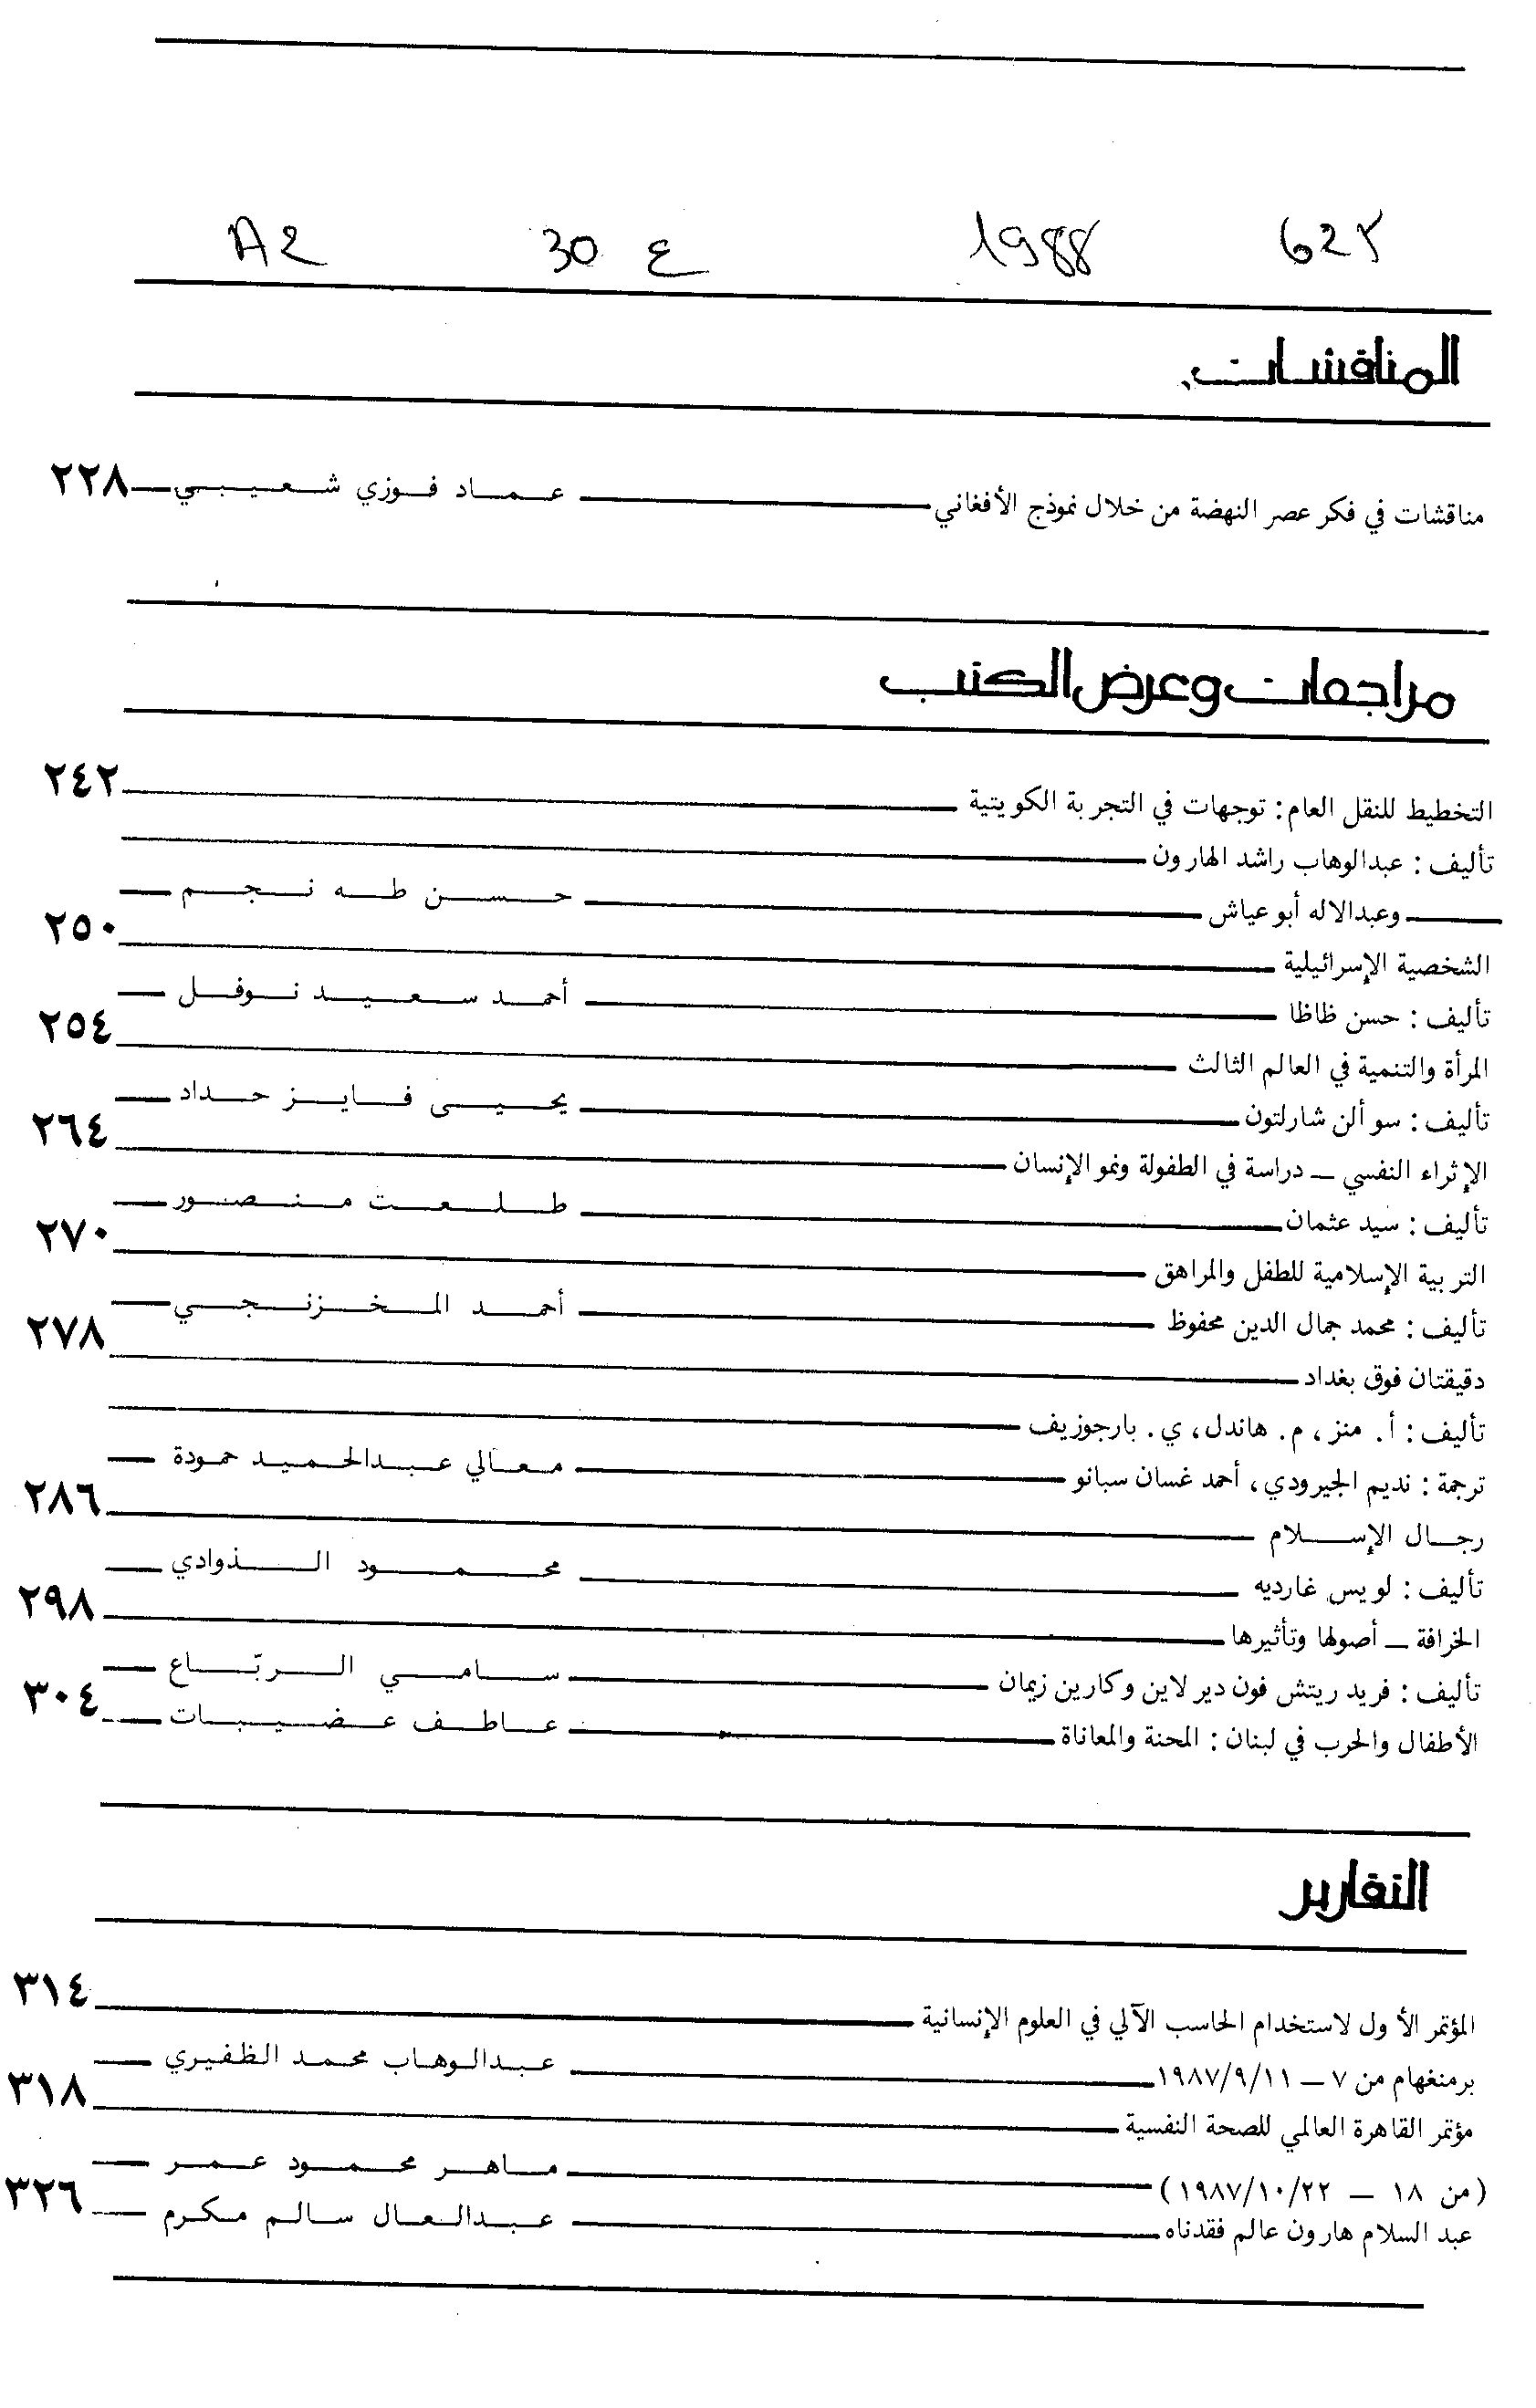 622 1988 ع 30 A2
المناقشات
مناقشات في فكر عصر النهضة من خلال نموذج الأفغاني عماد فوزي شعيبي ٢٢٨
مراجعات وعرض الكتب
التخطيط للنقل العام: توجهات في التجربة الكويتية ٢٤٢
تأليف: عبدالوهاب راشد الهارون
وعبدالاله أبو عياش حسن طه نجم
الشخصية الإسرائيلية ٢٥٠
تأليف: حسن ظاظا أحمد سعيد نوفل
المرأة والتنمية في العالم الثالث ٢٥٤
تأليف: سو ألن شارلتون يحيى فايز حداد
الإثراء النفسي – دراسة في الطفولة ونمو الإنسان ٢٦٤
تأليف: سيد عثمان طلعت منصور
التربية الإسلامية للطفل والمراهق ٢٧٠
تأليف: محمد جمال الدين محفوظ أحمد المخزنجي
دقيقتان فوق بغداد ٢٧٨
تأليف: أ. منز، م. هاندل، ي. بارجوزيف
ترجمة: نديم الجيرودي، أحمد غسان سبانو معالي عبدالحميد حمودة
رجال الإسلام ٢٨٦
تأليف: لويس غارديه محمود الذوادي
الخرافة – أصولها وتأثيرها ٢٩٨
تأليف: فريد ريتش فون دير لاين وكارين زيمان سامي الربّاع
الأطفال والحرب في لبنان: المحنة والمعاناة عاطف عضيبات ٣٠٤
التقارير
المؤتمر الأول لاستخدام الحاسب الآلي في العلوم الإنسانية ٣١٤
برمنغهام من ٧ – ١٩٨٧/٩/١١ عبدالوهاب محمد الظفيري
مؤتمر القاهرة العالمي للصحة النفسية ٣١٨
(من ١٨ – ١٩٨٧/١٠/٢٢) ماهر محمود عمر
عبد السلام هارون عالم فقدناه عبدالعال سالم مكرم ٣٢٦